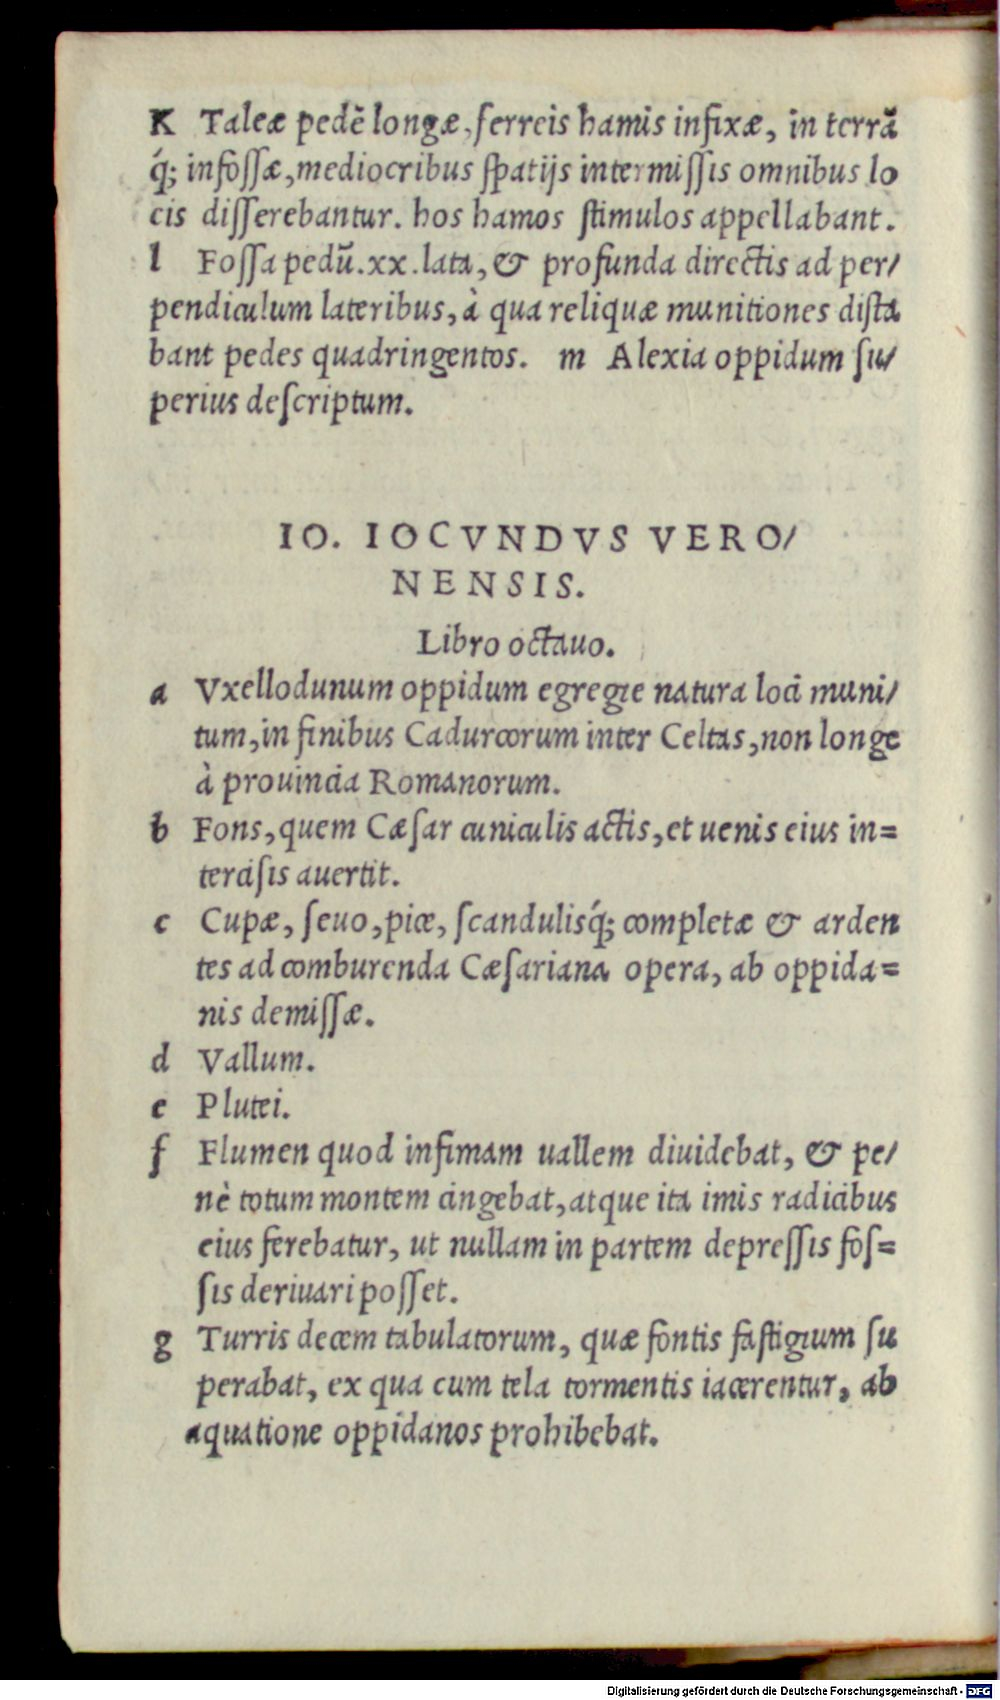 K Taleæ pedẽ longæ, ferreis hamis infixæ, in terrã
q́; infoſſæ, mediocribus ſpatijs intermiſſis omnibus lo
cis diſſerebantur. hos hamos ſtimulos appellabant.
l Foſſa pedũ.xx.lata, & profunda directis ad per/
pendiculum lateribus, à qua reliquæ munitiones diſta
bant pedes quadringentos. m Alexia oppidum ſu/
perius deſcriptum.
IO. IOCVNDVS VERO/
NENSIS.
Libro octauo.
a Vxellodunum oppidum egregie natura loci muni/
tum, in finibus Cadurcorum inter Celtas, non longe
à prouincia Romanorum.
b Fons, quem Cæſar cuniculis actis, et uenis eius in=
terciſis auertit.
c Cupæ, ſeuo, pice, ſcandulisq́; completæ & arden
tes ad comburenda Cæſariana opera, ab oppida=
nis demiſſæ.
d Vallum.
e Plutei.
f Flumen quod infimam uallem diuidebat, & pe/
nè totum montem cingebat, atque ita imis radicibus
eius ferebatur, ut nullam in partem depreſſis foſ=
ſis deriuari poſſet.
g Turris decem tabulatorum, quæ fontis faſtigium ſu
perabat, ex qua cum tela tormentis iacerentur, ab
aquatione oppidanos prohibebat.
Digitalisierung gefördert durch die Deutsche Forschungsgemeinschaft - DFG